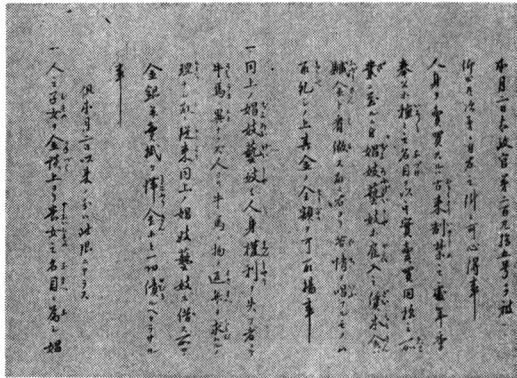 本月二日太政官第二百九十五号ニテ被
仰出候次第ニ付左之件々可心得事
人身ヲ賣買スルハ古来制禁ノ處年季
奉公等種々ノ名目ヲ以テ其實賣買同様ノ所
業ニ至ルニ付娼妓藝妓等雇入ノ資本金ハ
贓金ト看做ス故ニ右ヨリ苦情ヲ唱フルモノハ
取糺ノ上其金ノ全額ヲ可取揚事
一同上ノ娼妓藝妓ハ人身ノ權利ヲ失フ者ニテ
牛馬ニ異ナラス人ヨリ牛馬ニ物ノ返弁ヲ求ムルノ
理ナシ故ニ従来同上ノ娼妓藝妓ヘ借ス所ノ
金銀並ニ賣掛滞金等ハ一切債ルヘカラサル
事
但本月二日以来ノ分ハ此限ニアラス
一人ノ子女ヲ金談上ヨリ養女ノ名目ニ為シ娼